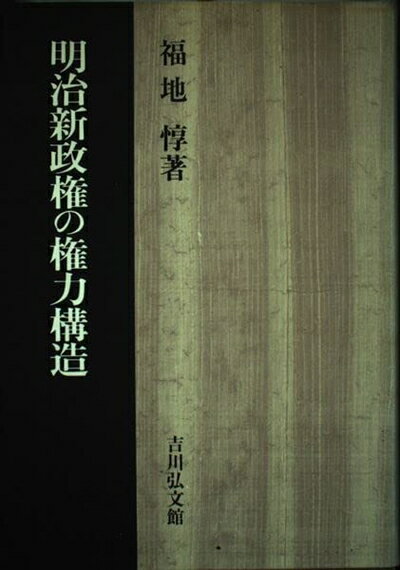 福地惇著
明治新政権の権力構造
吉川弘文館